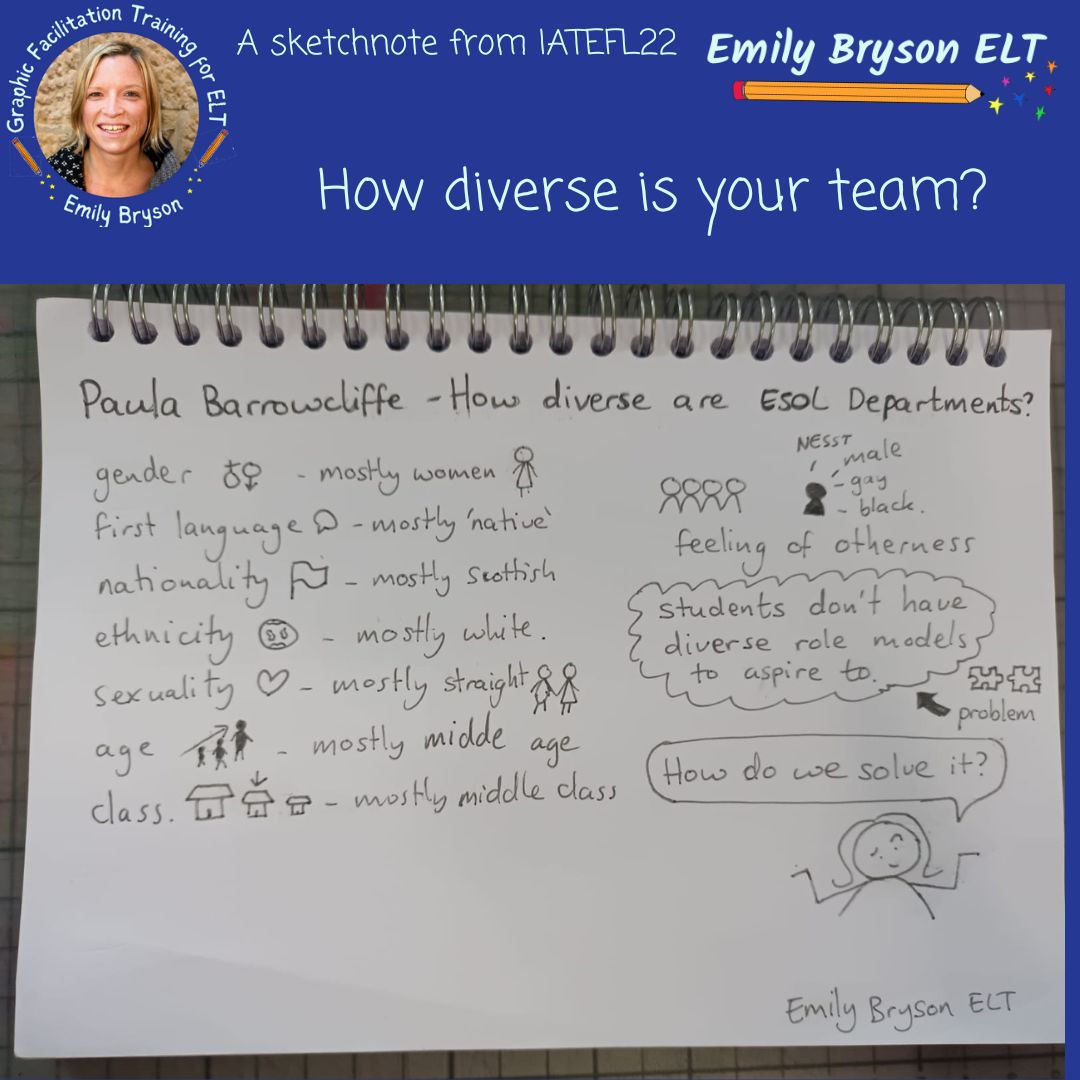 Graphic Facilitation Training for ELT
Emily Bryson
A sketchnote from IATEFL22
Emily Bryson ELT
How diverse is your team?
Paula Barrowcliffe - How diverse are ESOL Departments?
gender - mostly women
first language - mostly 'native'
nationality - mostly Scottish
ethnicity - mostly white.
sexuality - mostly straight
age - mostly midde age
class. - mostly middle class
NESST
male
- gay
- black.
feeling of otherness
students don't have
diverse role models
to aspire to.
problem
How do we solve it?
Emily Bryson ELT